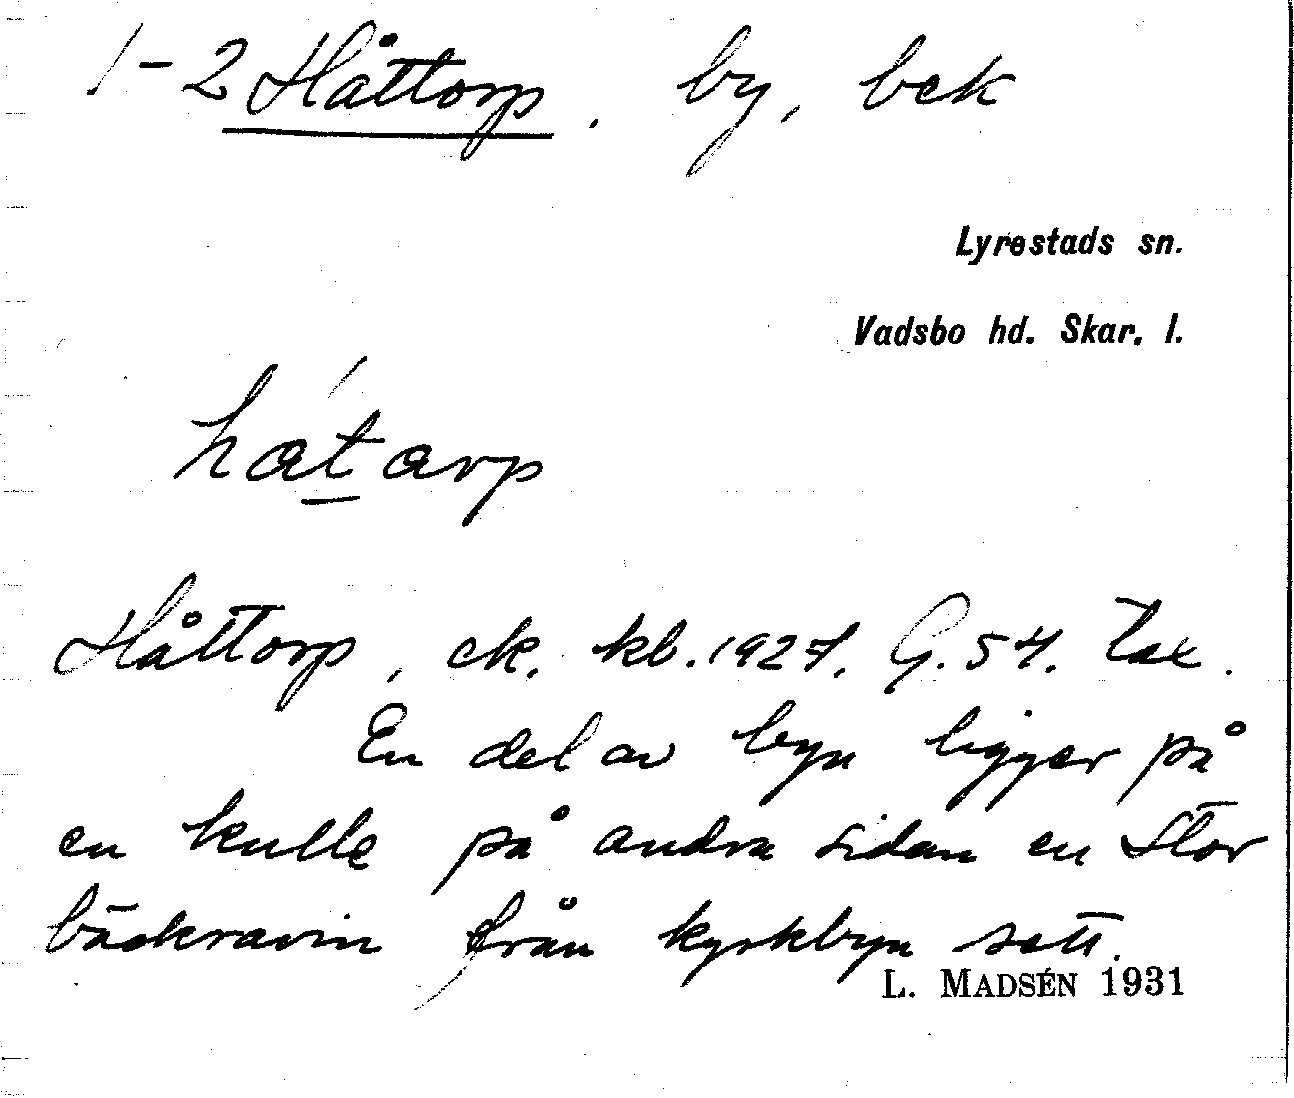 1-2 Håttorp. by, bek
Lyrestads sn.
Vadsbo hd. Skar. l.
hatarp
Håttorp, ek. kb. 1927. G. 54. Tax.
En del av byn ligger på
en kulle på andra sidan en stor
bäckravin från kyrkbyn sett.
L. MADSÉN 1931